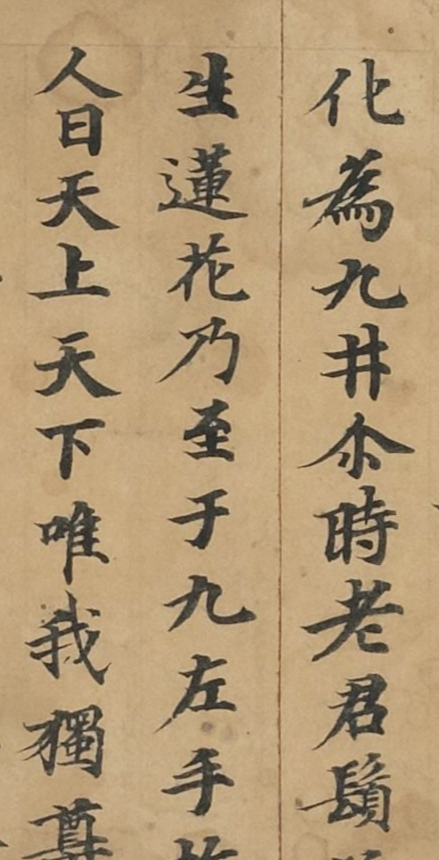 化為九井尒時老君鬚
生蓮花乃至于九左手
人曰天上天下唯我獨尊